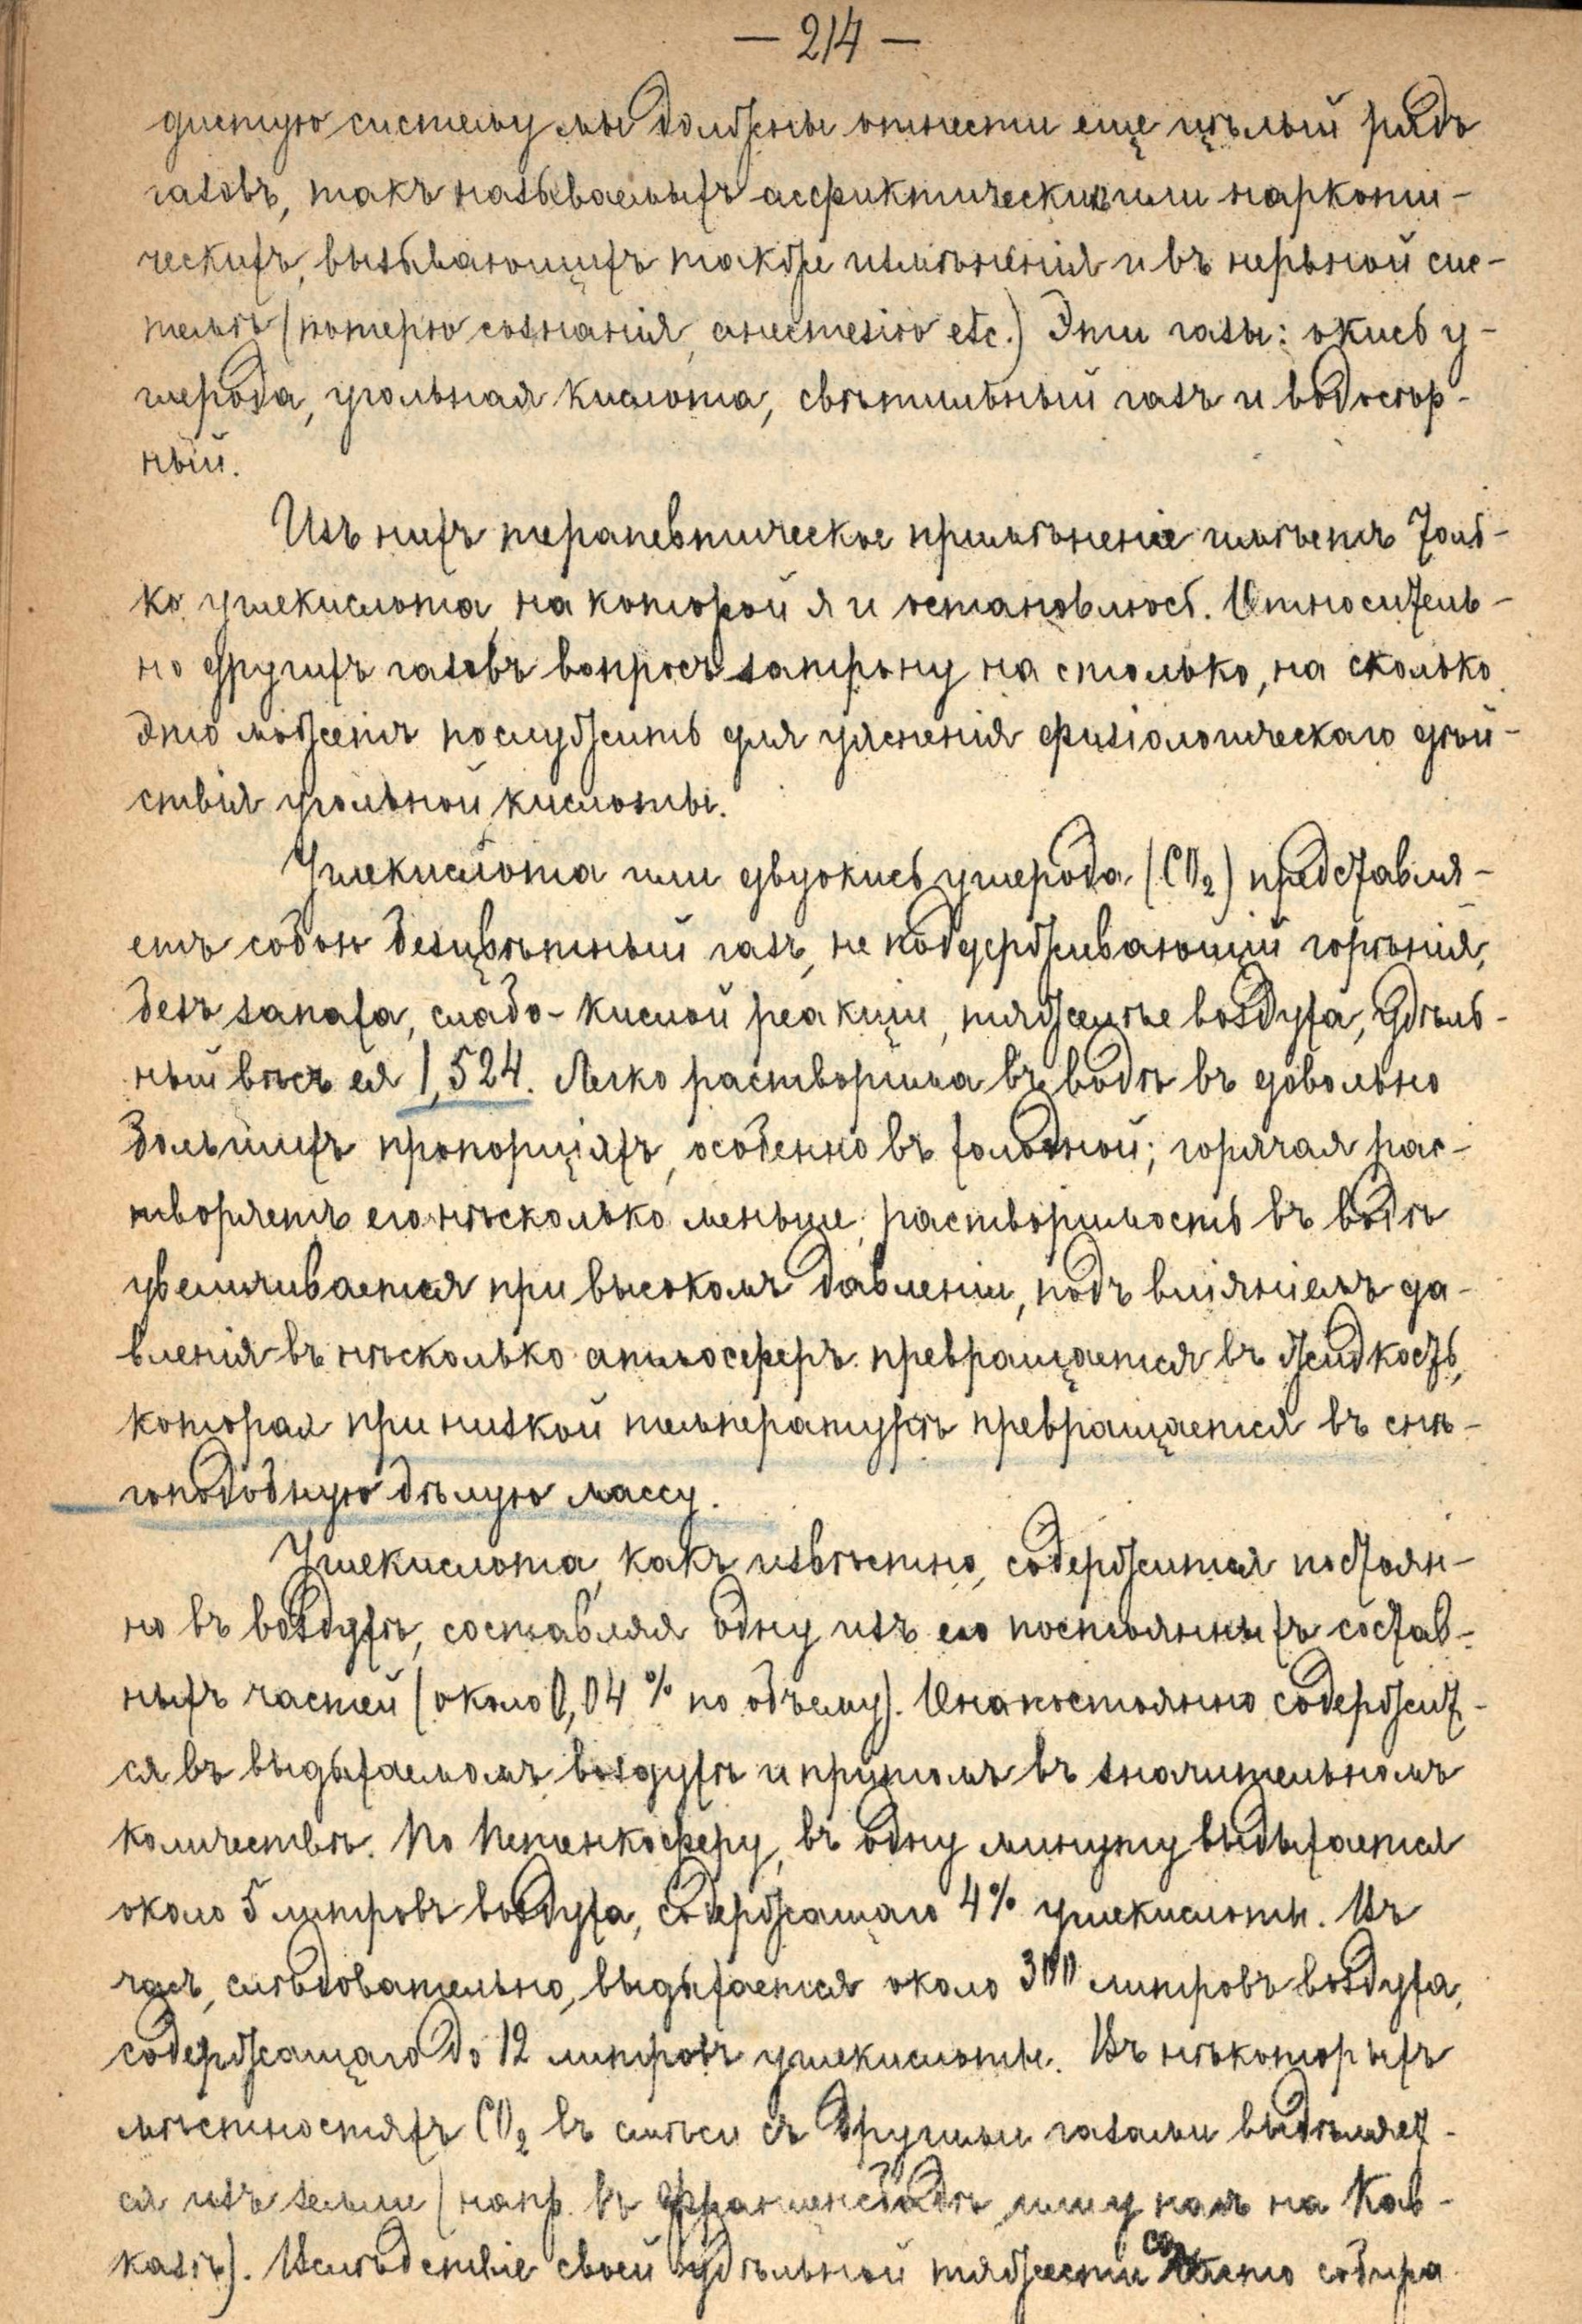 — 214 —
фистую систему мы должны отнести еще цѣлый рядъ
газовъ, такъ называемыхъ ассфиктическихъ или наркоти-
ческихъ, вызывающихъ также измѣненія и въ нервной сис-
темѣ (потерю сознанія, анестезію etc.) Эти газы: окись у-
глерода, угольная кислота, свѣтильный газъ и водосѣр-
ный.
Изъ нихъ терапевтическое примѣненіе имѣетъ толь-
ко углекислота, на которой я и остановлюсь. Относитель-
но другихъ газовъ вопросъ затрону на столько, на сколько
это можетъ послужить для уясненія физіологическаго дѣй-
ствія угольной кислоты.
Углекислота или двуокись углерода (CO₂) представля-
етъ собою безцвѣтный газъ, не поддерживающій горѣнія,
безъ запаха, слабо-кислой реакціи, тяжелѣе воздуха, удѣль-
ный вѣсъ ея 1,524. Легко растворима въ водѣ въ довольно
большихъ пропорціяхъ, особенно въ холодной; горячая рас-
творяетъ его нѣсколько меньше; растворимость въ водѣ
увеличивается при высокомъ давленіи, подъ вліяніемъ да-
вленія въ нѣсколько атмосферъ превращается въ жидкость,
которая при низкой температурѣ превращается въ снѣ-
гоподобную бѣлую массу.
Углекислота, какъ извѣстно, содержится постоян-
но въ воздухѣ, составляя одну изъ его постоянныхъ состав-
ныхъ частей (около 0,04 % по объему). Она постоянно содержит-
ся въ выдыхаемомъ воздухѣ и притомъ въ значительномъ
количествѣ. По Петенкоферу, въ одну минуту выдыхается
около 5 литровъ воздуха, содержащаго 4% углекислоты. Въ
часъ, слѣдовательно, выдыхается около 300 литровъ воздуха,
содержащаго до 12 литровъ углекислоты. Въ нѣкоторыхъ
мѣстностяхъ CO₂ въ смѣси съ другими газами выдѣляет-
ся изъ земли (напр. въ Франценсбадѣ, или у насъ на Кав-
казѣ). Вслѣдствіе своей удѣльной тяжести CO₂ часто собира